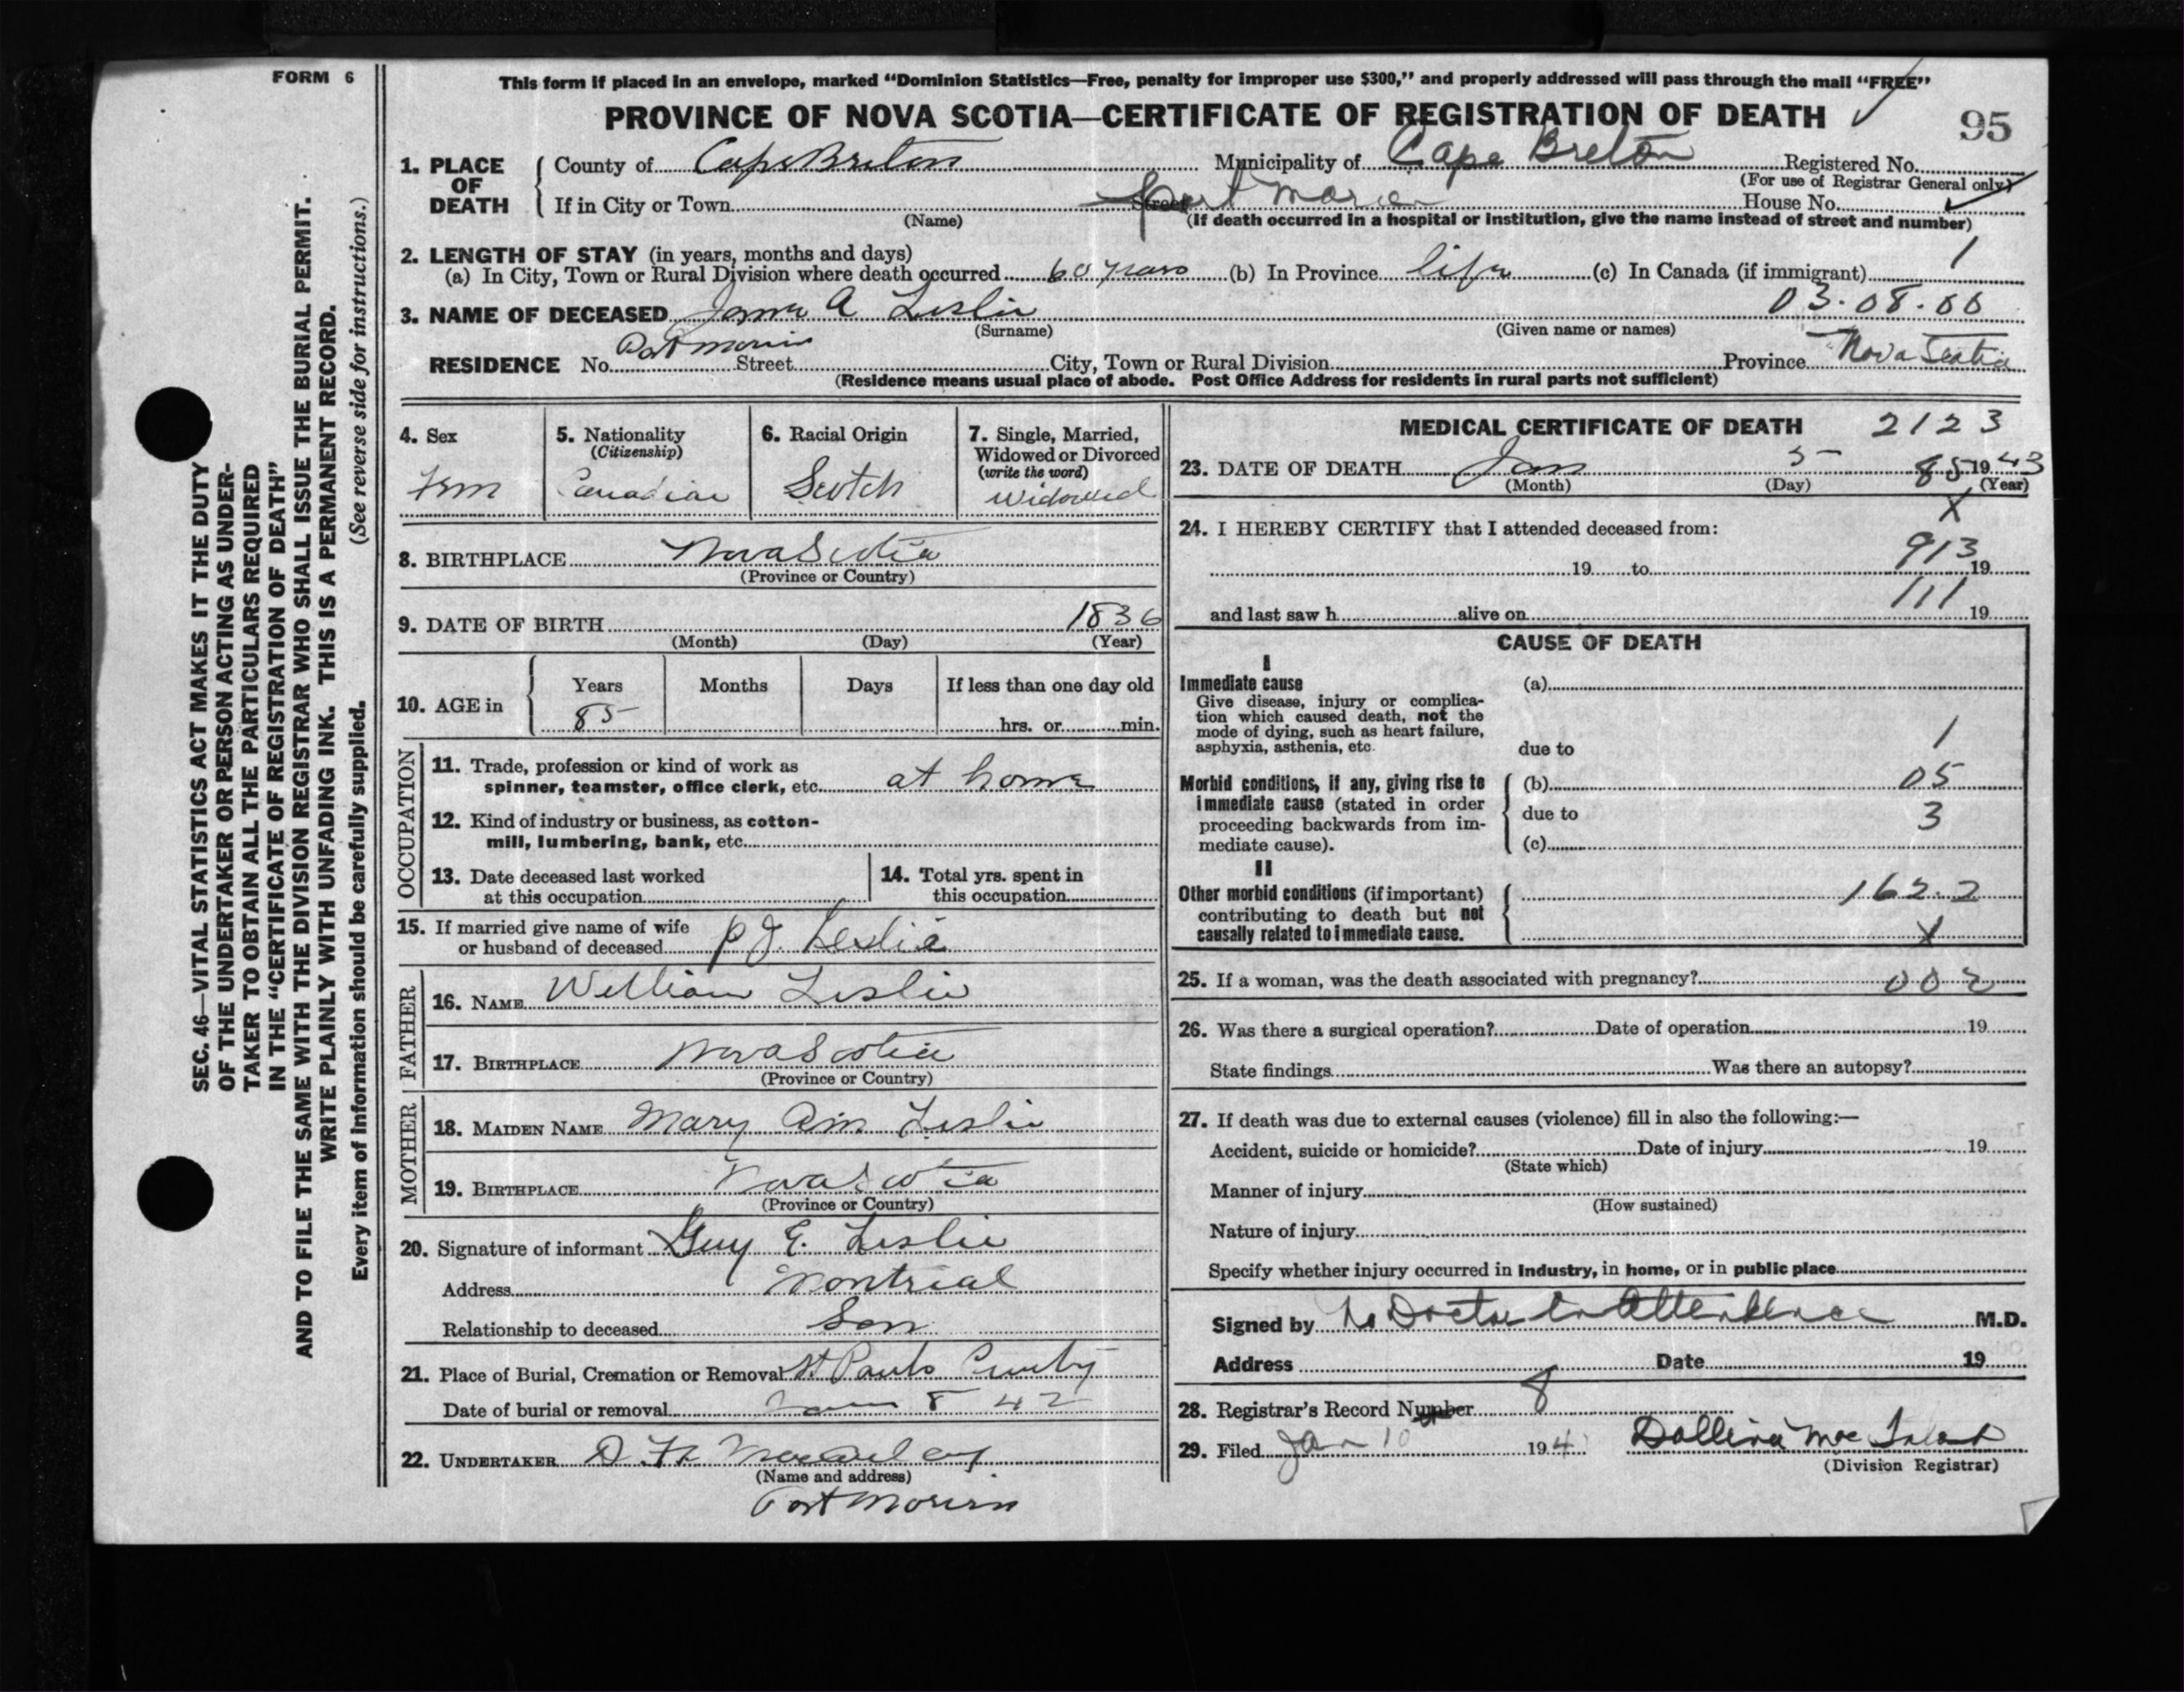 FORM 6
This form if placed in an envelope, marked “Dominion Statistics—Free, penalty for improper use $300,” and properly addressed will pass through the mail “FREE”
PROVINCE OF NOVA SCOTIA—CERTIFICATE OF REGISTRATION OF DEATH
95
1. PLACE OF DEATH
County of Cape Breton Municipality of Cape Breton Registered No.
(For use of Registrar General only)
If in City or Town Street Port Morien House No.
(Name) (If death occurred in a hospital or institution, give the name instead of street and number)
2. LENGTH OF STAY (in years, months and days)
(a) In City, Town or Rural Division where death occurred 60 years (b) In Province life (c) In Canada (if immigrant) 1
3. NAME OF DECEASED A Leslie 03.08.06
(Surname) (Given name or names)
RESIDENCE No. Port Morien Street City, Town or Rural Division Province Nova Scotia
(Residence means usual place of abode. Post Office Address for residents in rural parts not sufficient)
4. Sex
Fem
5. Nationality
(Citizenship)
Canadian
6. Racial Origin
Scotch
7. Single, Married,
Widowed or Divorced
(write the word)
Widowed
8. BIRTHPLACE Nova Scotia
(Province or Country)
9. DATE OF BIRTH 1836
(Month) (Day) (Year)
10. AGE in
Years Months Days If less than one day old
85 hrs. or min.
OCCUPATION
11. Trade, profession or kind of work as
spinner, teamster, office clerk, etc. at home
12. Kind of industry or business, as cotton-
mill, lumbering, bank, etc.
13. Date deceased last worked
at this occupation
14. Total yrs. spent in
this occupation
15. If married give name of wife
or husband of deceased P J. Leslie
FATHER
16. NAME William Leslie
17. BIRTHPLACE Nova Scotia
(Province or Country)
MOTHER
18. MAIDEN NAME Mary Ann Leslie
19. BIRTHPLACE Nova Scotia
(Province or Country)
20. Signature of informant Guy E. Leslie
Address Montrial
Relationship to deceased Son
21. Place of Burial, Cremation or Removal St Pauls
Date of burial or removal 8 42
22. UNDERTAKER
(Name and address)
Port Morien
MEDICAL CERTIFICATE OF DEATH 2123
23. DATE OF DEATH Jan 5 85 1943
(Month) (Day) (Year)
X
24. I HEREBY CERTIFY that I attended deceased from:
913
19 to 19
111
and last saw h alive on 19
CAUSE OF DEATH
I
Immediate cause (a)
Give disease, injury or complica-
tion which caused death, not the
mode of dying, such as heart failure,
asphyxia, asthenia, etc.
due to 1
Morbid conditions, if any, giving rise to
immediate cause (stated in order
proceeding backwards from im-
mediate cause).
(b) 05
due to 3
(c)
II
Other morbid conditions (if important)
contributing to death but not
causally related to immediate cause.
162.2
X
25. If a woman, was the death associated with pregnancy? 002
26. Was there a surgical operation? Date of operation 19
State findings Was there an autopsy?
27. If death was due to external causes (violence) fill in also the following:—
Accident, suicide or homicide? Date of injury 19
(State which)
Manner of injury
(How sustained)
Nature of injury
Specify whether injury occurred in industry, in home, or in public place
Signed by No Doctor in Attendance M.D.
Address Date 19
28. Registrar's Record Number 8
29. Filed Jan 10 194
(Division Registrar)
SEC. 46—VITAL STATISTICS ACT MAKES IT THE DUTY
OF THE UNDERTAKER OR PERSON ACTING AS UNDER-
TAKER TO OBTAIN ALL THE PARTICULARS REQUIRED
IN THE “CERTIFICATE OF REGISTRATION OF DEATH”
AND TO FILE THE SAME WITH THE DIVISION REGISTRAR WHO SHALL ISSUE THE BURIAL PERMIT.
WRITE PLAINLY WITH UNFADING INK. THIS IS A PERMANENT RECORD.
Every item of information should be carefully supplied. (See reverse side for instructions.)